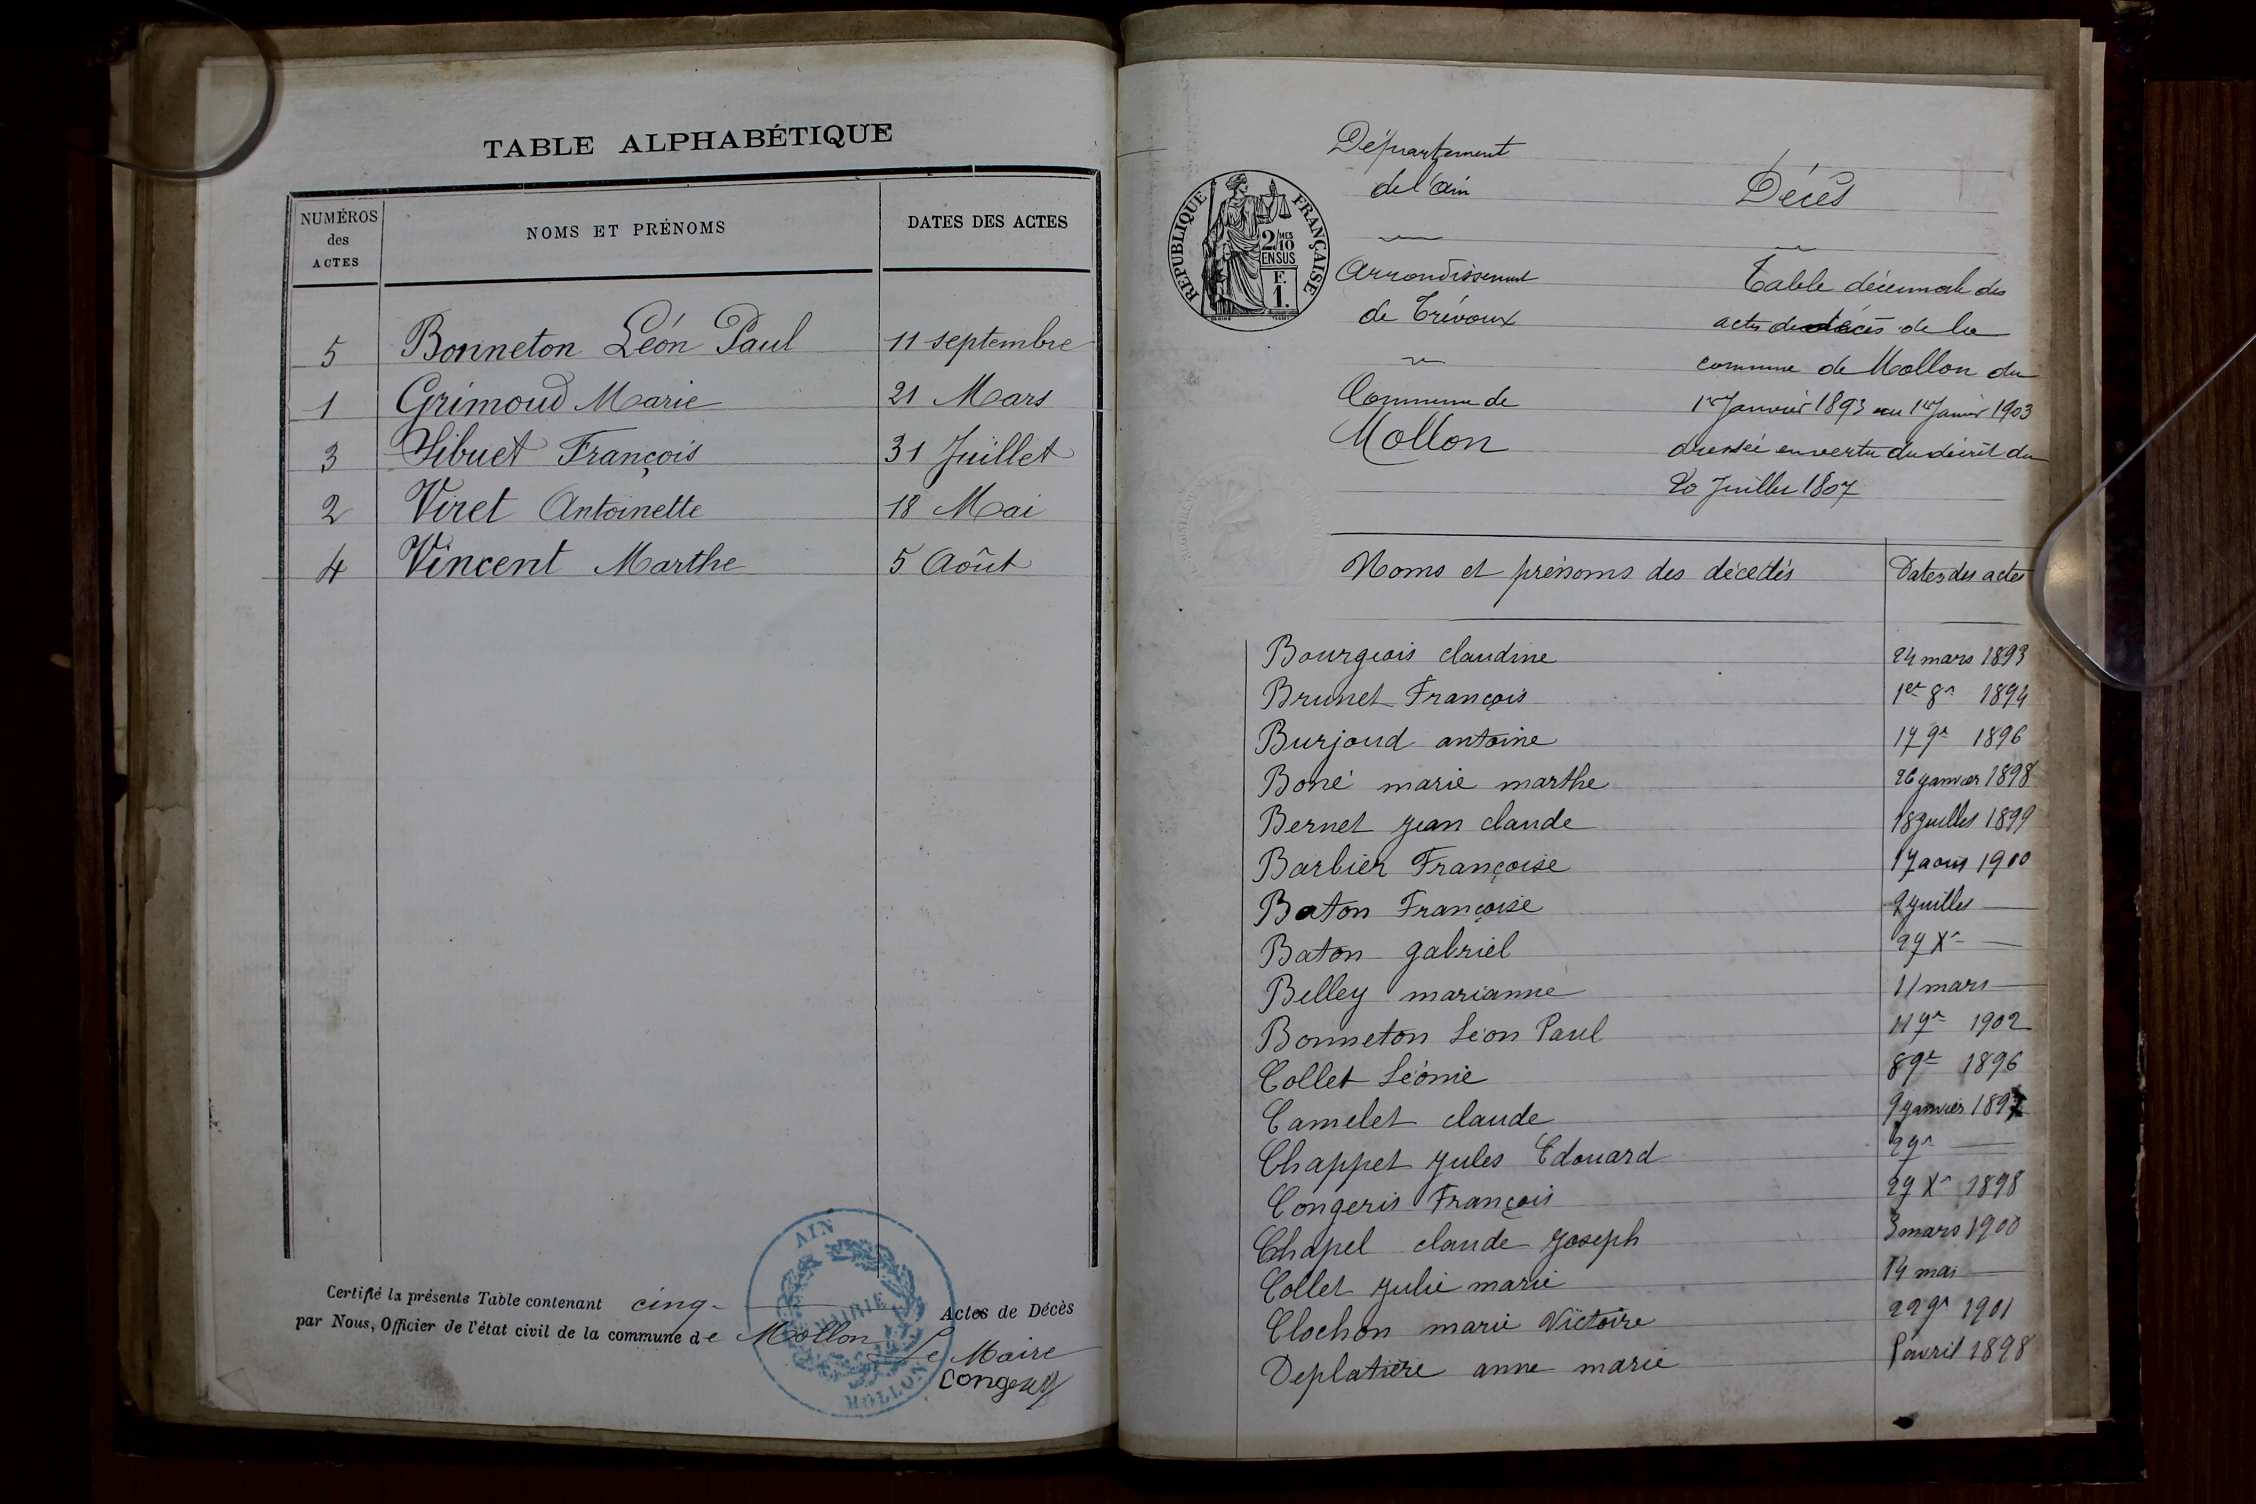 TABLE ALPHABÉTIQUE
NUMÉROS des ACTES NOMS ET PRÉNOMS DATES DES ACTES
5 Bonneton Léon Paul 11 septembre
1 Grimoud Marie 21 Mars
3 Sibuet François 31 Juillet
2 Viret Antoinette 18 Mai
4 Vincent Marthe 5 Août
Certifié la présente Table contenant cinq Actes de Décès
par Nous, Officier de l'état civil de la commune de Mollon
Le Maire
AIN
MAIRIE
MOLLON
Département
de l'ain
Arrondissement
de Trévoux
Commune de
Mollon
RÉPUBLIQUE FRANÇAISE
2/10 MES
EN SUS
F.
1.
Décès
Table décennale des
actes de décès de la
commune de Mollon du
1er Janvier 1893 au 1er Janvier 1903
dressée en vertu du décret du
20 Juillet 1807
Noms et prénoms des décédés Dates des actes
Bourgeois claudine 24 mars 1893
Brunet François 1er 8re 1894
Burjoud antoine 17 9re 1896
Boné marie marthe 26 janvier 1898
Bernet jean claude 18 juillet 1899
Barbier Françoise 17 aout 1900
Baton Françoise 2 juillet —
Baton gabriel 27 Xre —
Belley marianne 11 mars —
Bonneton Léon Paul 11 7re 1902
Collet Léonie 8 9re 1896
Camelet claude 9 janvier 1897
Chappet jules Edouard —
Congeris François 27 Xre 1898
Chapel claude joseph 3 mars 1900
Collet julie marie 14 mai —
Clochon marie Victoire 22 9re 1901
Deplatière anne marie avril 1898